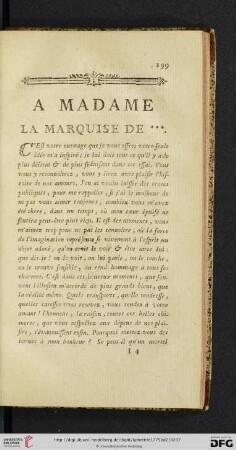 199
A MADAME
LA MARQUISE DE ***.
C'Est votre ouvrage que je vous offre; votre seule
idée m'a inspiré; je lui dois tout ce qu'il y a de
plus délicat & de plus séduisant dans cet essai. Vous
vous y reconnoîtrez, vous y lirez avec plaisir l'his-
toire de nos amours. J'en ai voulu laisser des traces
publiques, pour me rappeller, si j'ai le malheur de
ne pas vous aimer toujours, combien vous m'avez
été chere, dans un temps, où mon cœur épuisé ne
sentira peut-être plus rien. Il est des momens, vous
m'aimez trop pour ne pas les connoître, où la force
de l'imagination représente si vivement à l'esprit un
objet adoré, qu'on croit le voir & être avec lui:
que dis-je! on le voit, on lui parle, on le touche,
on le trouve sensible, on rend hommage à tous ses
charmes. C'est dans ces heureux momens, que sou-
vent l'illusion m'accorde de plus grands biens, que
la réalité même. Quels transports, quelle tendresse,
quelles caresses vous recevez, vous rendez à votre
amant! l'honneur, la raison, toutes ces belles chi-
meres, que vous respectez aux dépens de nos plai-
sirs, s'évanouissent enfin. Pourquoi mettez-vous des
bornes à mon bonheur? Se peut-il qu'un mortel
I 4
UNIVERSITÄTS-
BIBLIOTHEK
HEIDELBERG
DFG